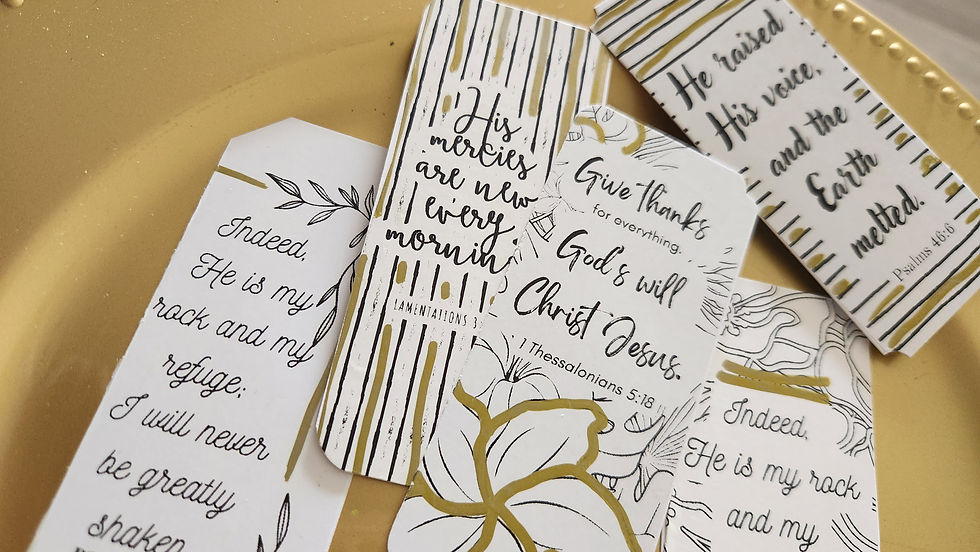 Indeed,
He is my
rock and my
refuge;
I will never
be greatly
shaken
His
mercies
are new
every
mornin
LAMENTATIONS 3
Give thanks
for everything.
God's will
Christ Jesus.
1 Thessalonians 5:18
He raised
His voice,
and the
Earth
melted.
Psalms 46:6
Indeed,
He is my rock
and my